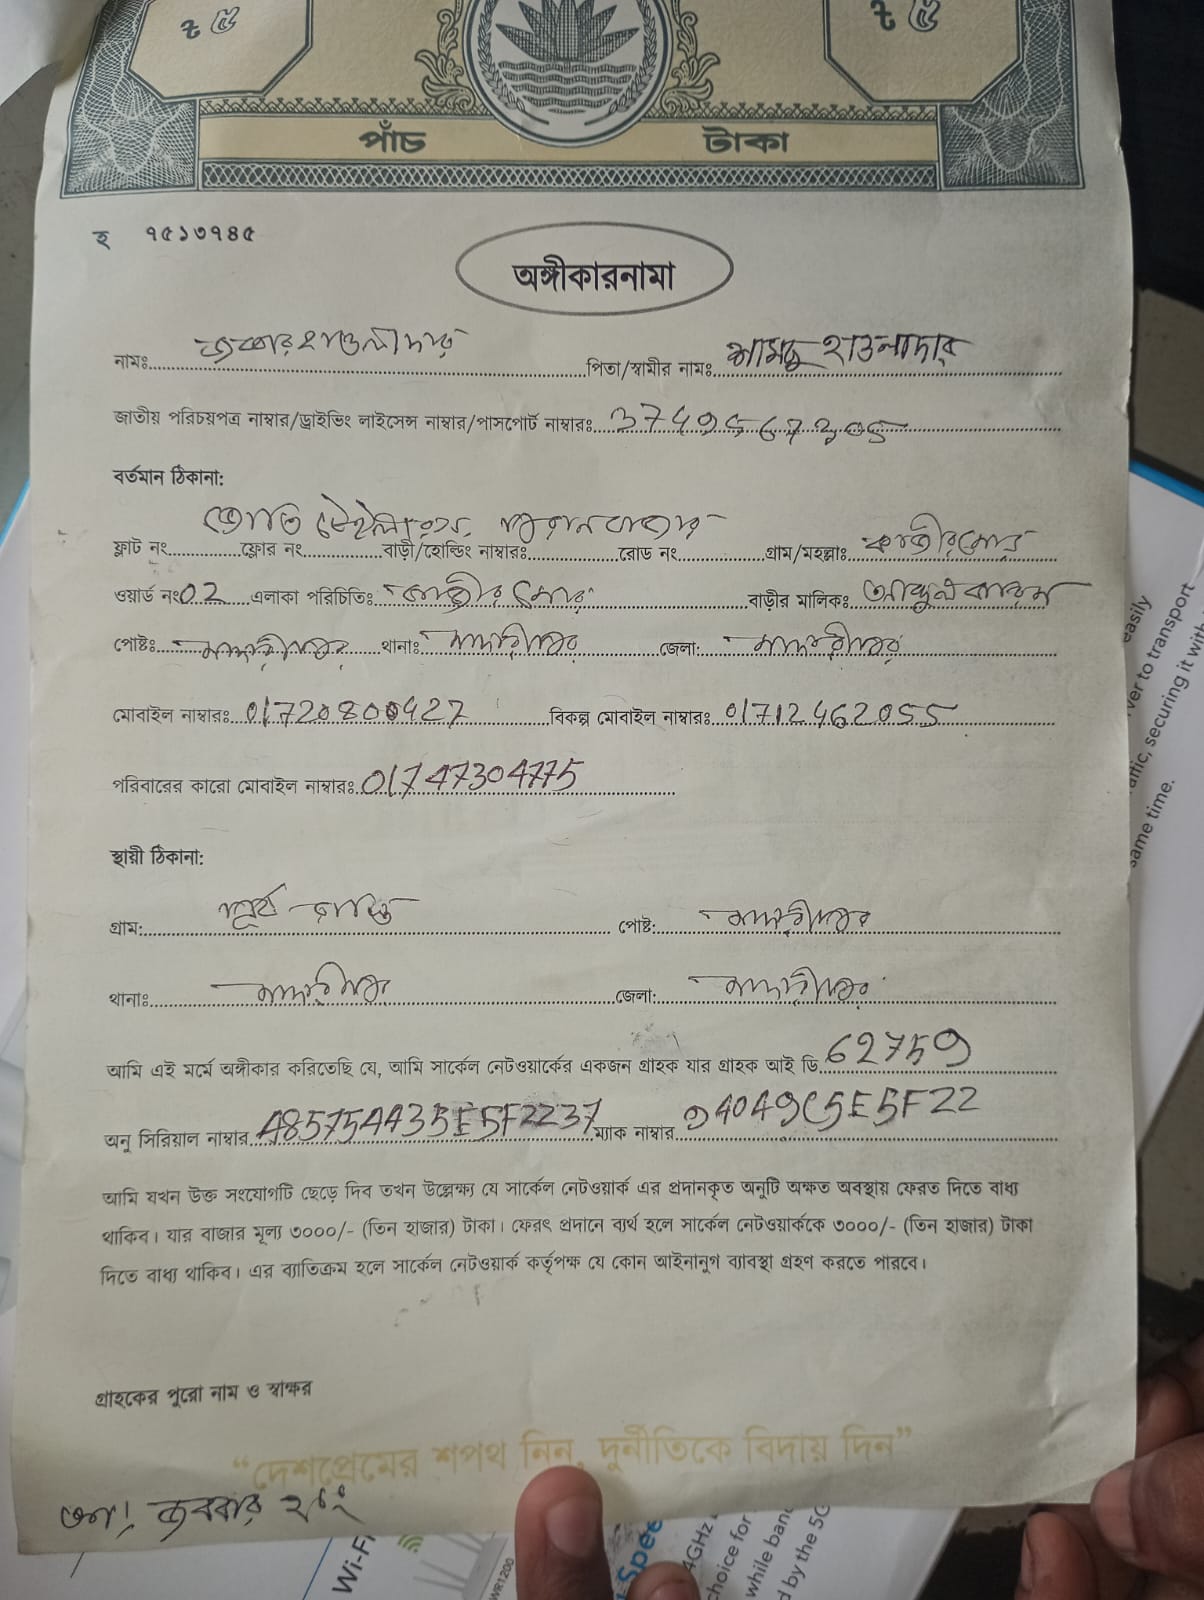 ট ৫ ট ৫
পাঁচ টাকা
হ ৭৫১৩৭৪৫
অঙ্গীকারনামা
নামঃ জব্বার হাওলাদার পিতা/স্বামীর নামঃ হাওলাদার
জাতীয় পরিচয়পত্র নাম্বার/ড্রাইভিং লাইসেন্স নাম্বার/পাসপোর্ট নাম্বারঃ
বর্তমান ঠিকানা:
ফ্লাট নং ফ্লোর নং বাড়ী/হোল্ডিং নাম্বারঃ রোড নং গ্রাম/মহল্লাঃ কাজীর মোড়
ওয়ার্ড নংঃ 02 এলাকা পরিচিতিঃ কাজীর মোড় বাড়ীর মালিকঃ
পোষ্টঃ মাদারীপুর থানাঃ মাদারীপুর জেলা: মাদারীপুর
মোবাইল নাম্বারঃ 01720800427 বিকল্প মোবাইল নাম্বারঃ 01712462055
পরিবারের কারো মোবাইল নাম্বারঃ 01747304775
স্থায়ী ঠিকানা:
গ্রাম: পূর্ব পোষ্ট: মাদারীপুর
থানাঃ মাদারীপুর জেলা: মাদারীপুর
আমি এই মর্মে অঙ্গীকার করিতেছি যে, আমি সার্কেল নেটওয়ার্কের একজন গ্রাহক যার গ্রাহক আই ডি 62759
অনু সিরিয়াল নাম্বার 485754435E5F2237 ম্যাক নাম্বার 94049C5E5F22
আমি যখন উক্ত সংযোগটি ছেড়ে দিব তখন উল্লেক্ষ্য যে সার্কেল নেটওয়ার্ক এর প্রদানকৃত অনুটি অক্ষত অবস্থায় ফেরত দিতে বাধ্য
থাকিব। যার বাজার মূল্য ৩০০০/- (তিন হাজার) টাকা। ফেরৎ প্রদানে ব্যর্থ হলে সার্কেল নেটওয়ার্ককে ৩০০০/- (তিন হাজার) টাকা
দিতে বাধ্য থাকিব। এর ব্যাতিক্রম হলে সার্কেল নেটওয়ার্ক কর্তৃপক্ষ যে কোন আইনানুগ ব্যাবস্থা গ্রহণ করতে পারবে।
গ্রাহকের পুরো নাম ও স্বাক্ষর
“দেশপ্রেমের শপথ নিন, দুর্নীতিকে বিদায় দিন”
জব্বার
easily
ver to transport
affic, securing it with
same time.
Wi-Fi
WR1200
Spee
4GHz
choice for
while band
d by the 5G